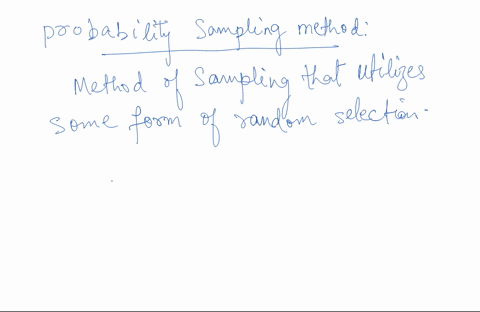 probability Sampling method:
Method of Sampling that utilizes
some form of random selection.